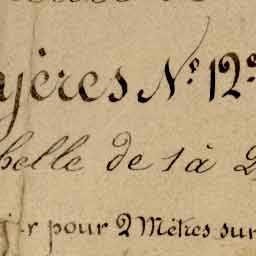 yères N.° 12.°
helle de 1 à 2
pour 2 Mètres sur